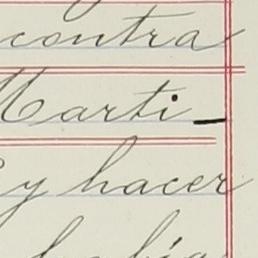 contra
Marti_
y hacer